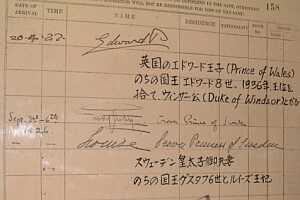 158
DATE OF ARRIVAL
TIME
NAME
RESIDENCE
NATIONALITY
20-4-22
Edward P
英国のエドワード王子(Prince of Wales)
のちの国王エドワード8世、1936年王位を
捨て、ウィンザー公(Duke of Windsor)となる
Sept.
1926
Crown Prince of Sweden
Louise Crown Princess of Sweden
スウェーデン皇太子御夫妻
のちの国王グスタフ6世とルイーズ王妃